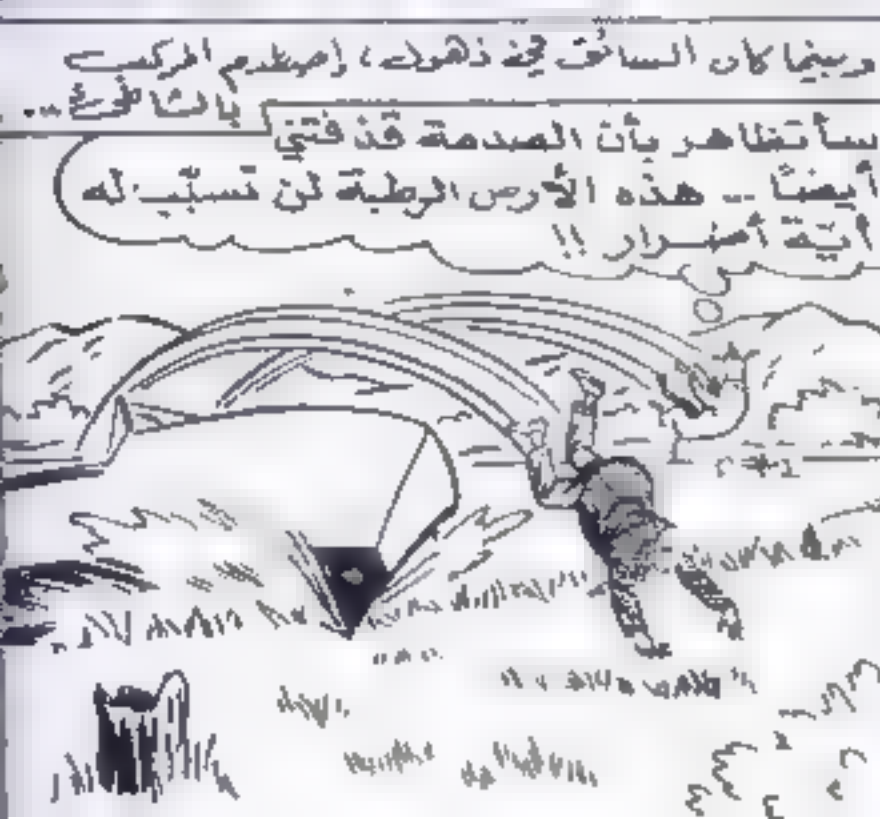 وبينما كان السائق في ذهول، إصطدم المركب
بالشاطئ ...
سأتظاهر بأن الصدمة قذفتني
أيضًا .. هذه الأرض الرطبة لن تسبّب له
أيّة أضرار !!